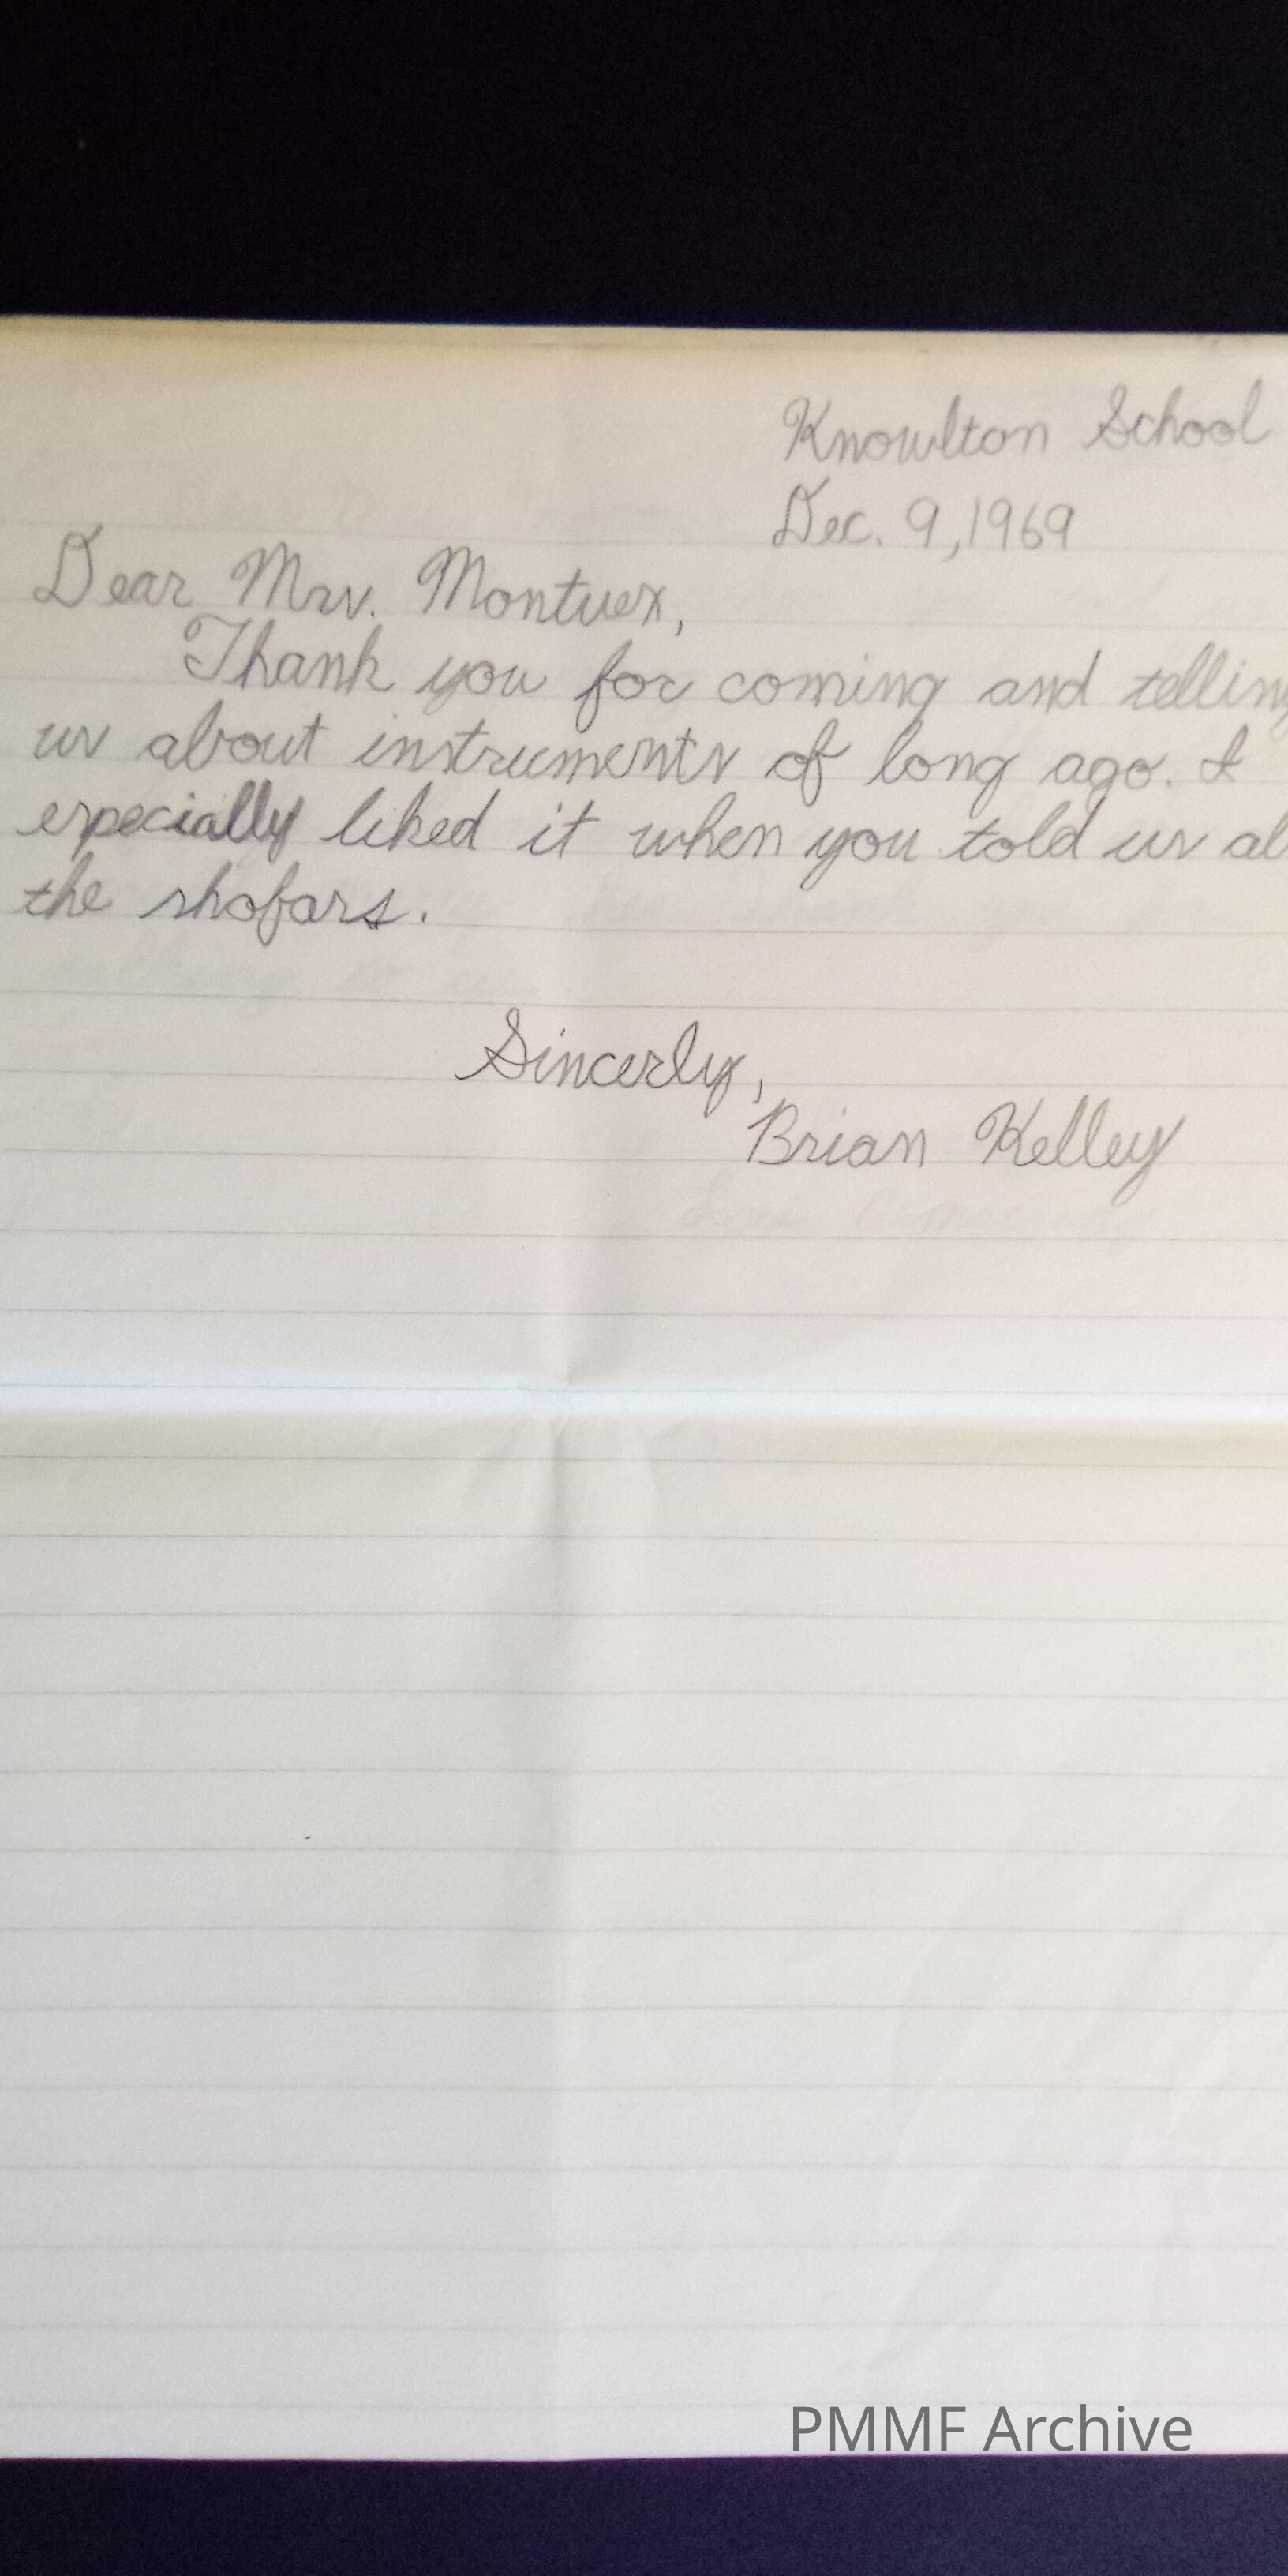 Knowlton School
Dec. 9, 1969
Dear Mrs. Montuex,
Thank you for coming and telling
us about instruments of long ago. I
especially liked it when you told us ab
the shofars.
Sincerly,
Brian Kelley
PMMF Archive